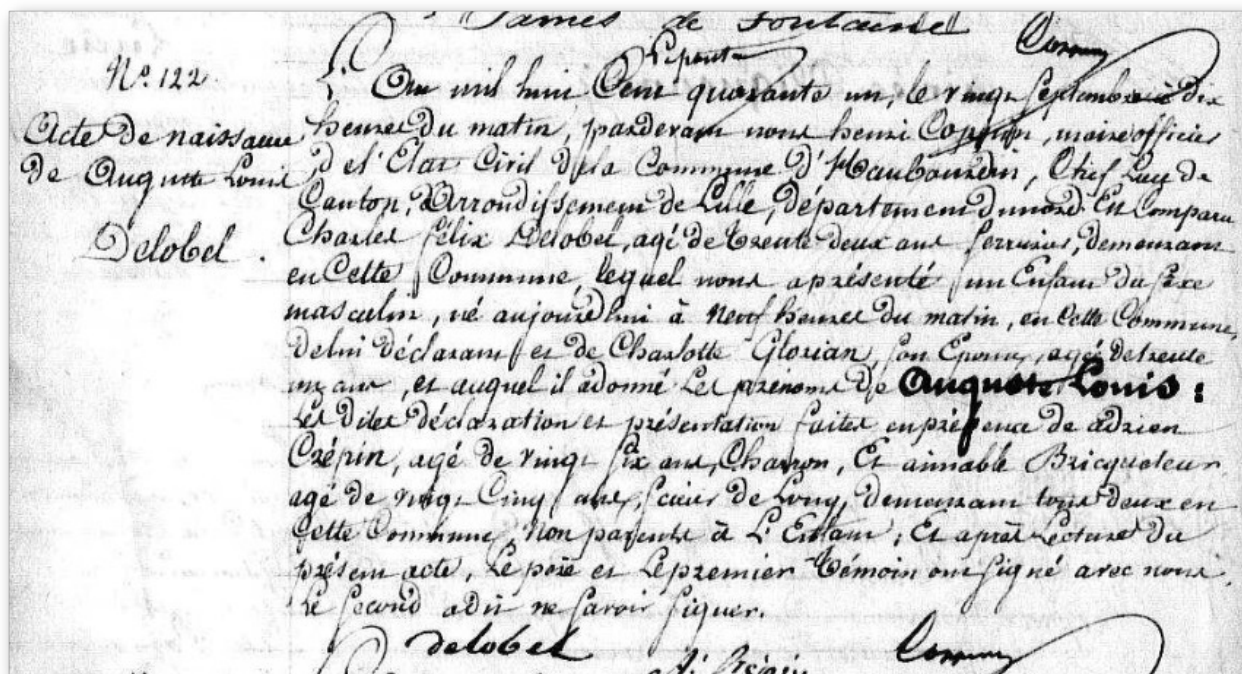 James de Fontaine
N.º 122
Acte de naissance
de Auguste Louis
Delobel.
L'An mil huit Cent quarante un, le vingt Septembre à dix
heures du matin, pardevant nous henri maire officier
de l'Etat Civil de la Commune d'Haubourdin, Chef Lieu de
Canton, Arrondissement de Lille, département du nord Est Comparu
Charles félix Delobel, agé de trente deux ans Serrurier, demeurant
en Cette Commune, lequel nous a présenté un Enfant du Sexe
masculin, né aujourdhui à Neuf heures du matin, en Cette Commune,
de lui déclarant et de Charlotte Glorian, son Epouse, agée de trente
un ans, et auquel il a donné Les prénoms de Auguste Louis:
Les dites déclaration et présentation faites en présence de adrien
Crépin, agé de vingt six ans, Charron, Et aimable Bricquoteur
agé de vingt Cinq ans, scieur de Long, demeurant tous deux en
Cette Commune, Non parents à L'Enfant; Et après Lecture du
présent acte, Le père et Le premier témoin ont signé avec nous,
Le second a dit ne savoir signer.
delobel